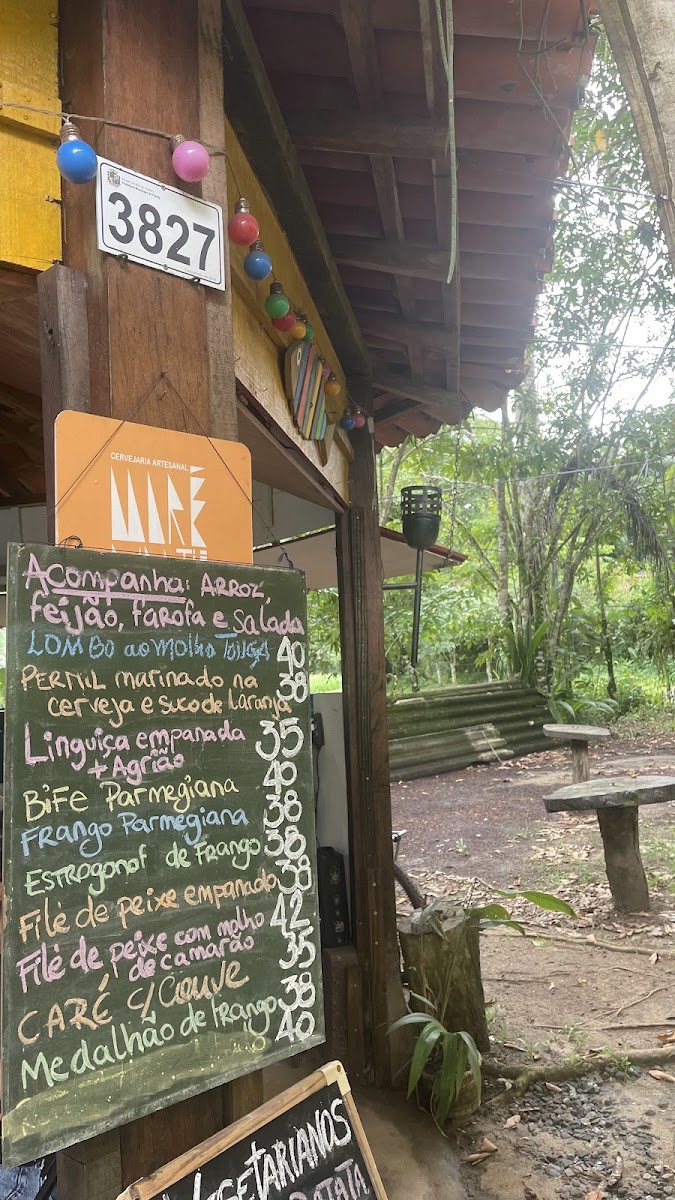 3827
CERVEJARIA ARTESANAL
MARÉ
Acompanha: ARROZ,
feijão, farofa e salada
LOMBO ao molho TONGA 40
PERNIL marinado na 38
cerveja e suco de laranja
Linguiça empanada 35
+ Agrião
Bife Parmegiana 40
Frango Parmegiana 38
ESTROGONOF de FRango 38
Filé de peixe empanado 38
Filé de peixe com molho 42
de camarão 35
CARÉ c/ Couve 38
Medalhão de frango 40
VEGETARIANOS
BATATA